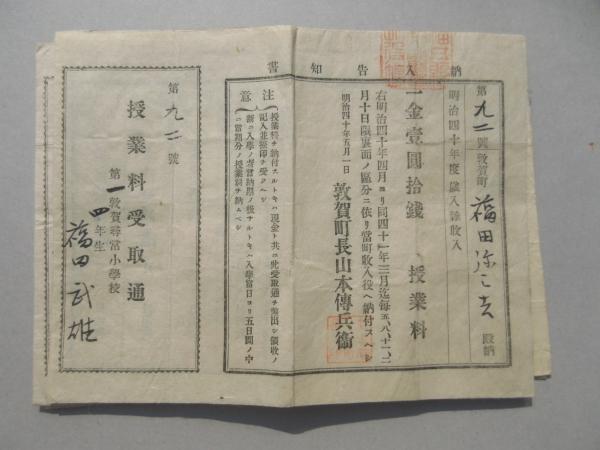 納入告知書
第九二號 敦賀町 福田弥三吉 殿納
明治四十年度歳入雜收入
一金壹圓拾錢 授業料
右明治四十年四月ヨリ同四十一年三月迄每五、八、十一、二
月十日限裏面ノ區分ニ依リ當町收入役ヘ納付スヘシ
明治四十年五月一日
敦賀町長山本傳兵衞
注意
授業料ヲ納付スルトキハ現金ト共ニ此受取通ヲ差出シ領收ノ
記入並極印ヲ受クヘシ
新ニ入學ノ者當納期ノ後ナルトキハ入學當日ヨリ五日間ノ中
ニ當期分ノ授業料ヲ納ムヘシ
第九二號
授業料受取通
第一敦賀尋常小學校
四年生
福田武雄